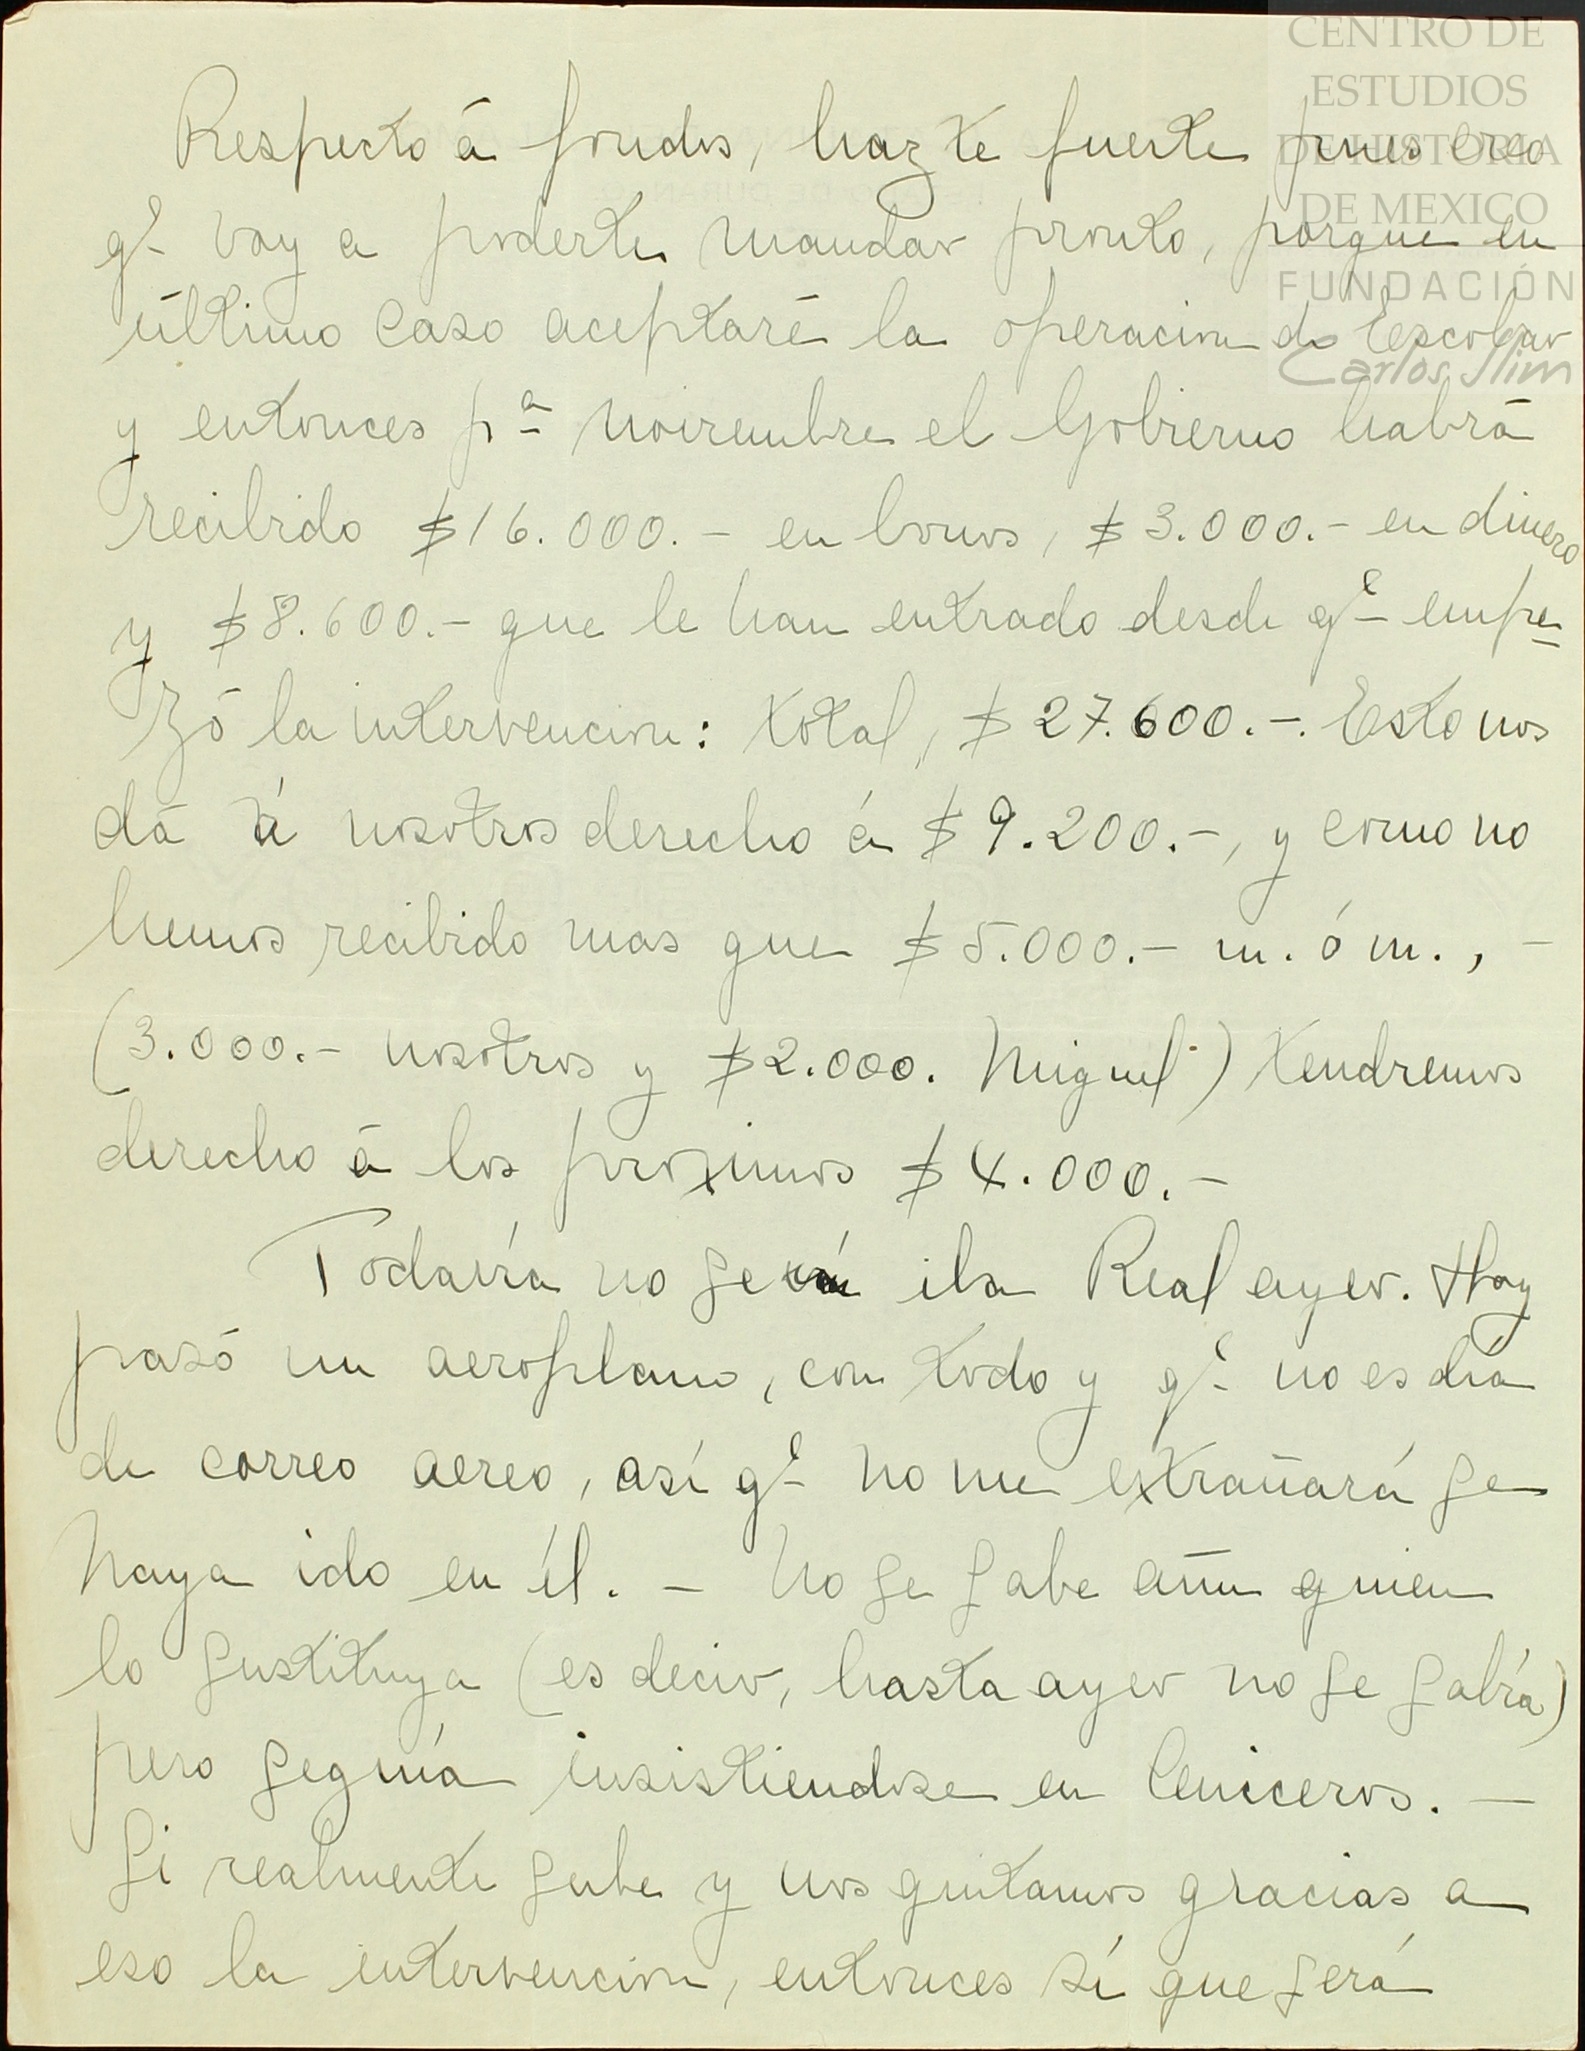 CENTRO DE
ESTUDIOS
DE HISTORIA
DE MEXICO
FUNDACIÓN
Carlos Slim
Respecto á fondos, hazte fuerte pues creo
qᵉ voy a poderte mandar pronto, porque en
último caso aceptaré la operacion de Escobar
y entonces pª noviembre el Gobierno habrá
recibido $16.000.- en bonos, $3.000.- en dinero
y $8.600.- que le han entrado desde qᵉ empe
zó la intervencion: total, $27.600.-. Esto nos
dá á nosotros derecho á $9.200.-, y como no
hemos recibido mas que $5.000.- m. ó m., -
(3.000.- nosotros y $2.000. Miguel) tendremos
derecho á los proximos $4.000.-
Todavía no se iba Real ayer. Hoy
pasó un aeroplano, con todo y qᵉ no es día
de correo aereo, así qᵉ no me extrañará se
haya ido en él. - No se sabe aún quien
lo sustituya (es decir, hasta ayer no se sabía)
pero seguía insistiendose en Ceniceros. -
Si realmente sube y nos quitamos gracias a
eso la intervencion, entonces sí que será